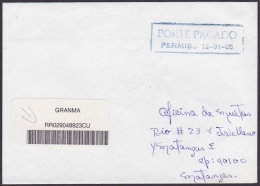 PORTE PAGADO
PERMIS. 12-01-05
GRANMA
RR029048923CU
Oficina de Multas
Rio # 23 y Jovellano
y Matanzas
cp: 40100
Matanzas